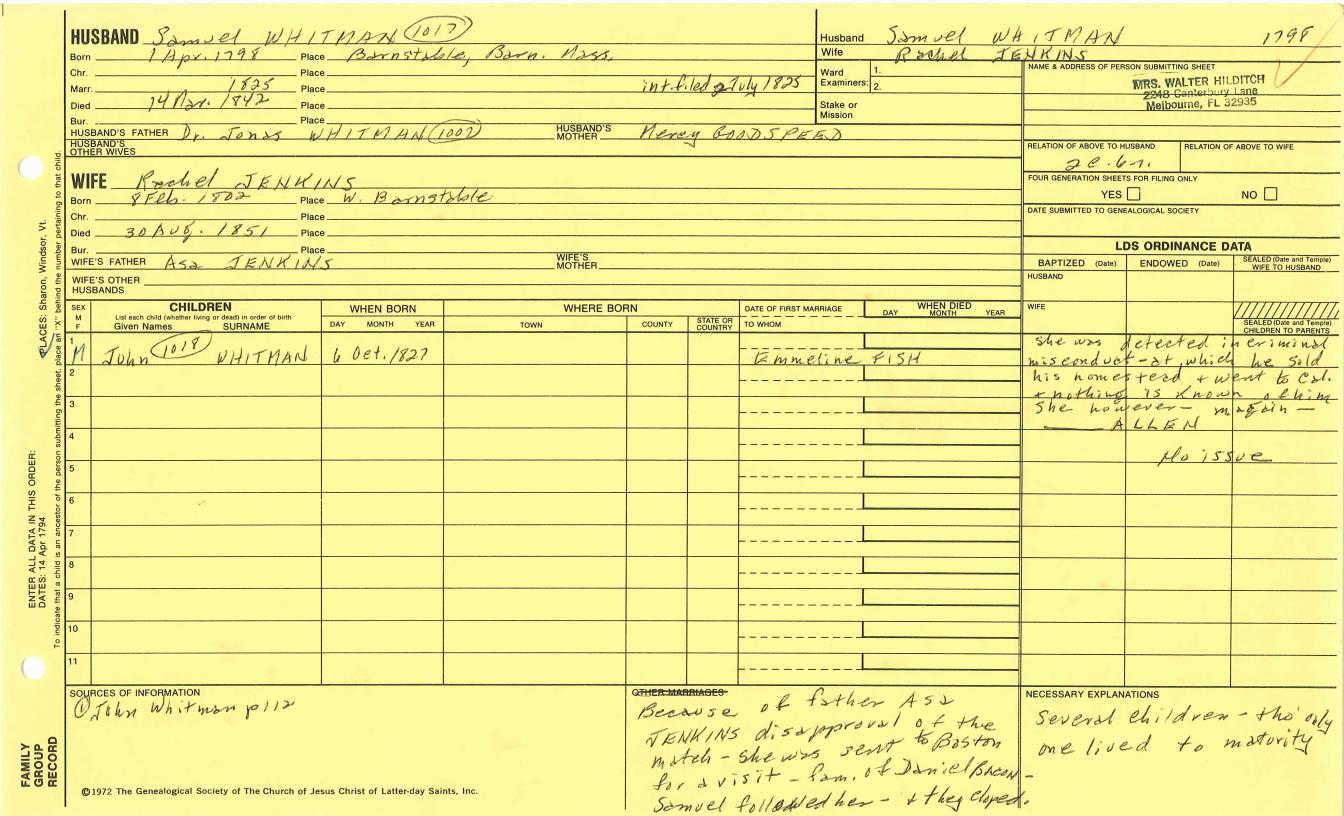 HUSBAND Samuel WHITMAN 1017
Born 1 Apr. 1798 Place Barnstable, Barn. Mass.
Chr. Place
Marr. 1825 Place int. filed 2 July 1825
Died 14 Mar. 1842 Place
Bur. Place
HUSBAND'S FATHER Dr. Jonas WHITMAN 1002 HUSBAND'S MOTHER Mercy GOODSPEED
HUSBAND'S OTHER WIVES
WIFE Rachel JENKINS
Born 8 Feb. 1802 Place W. Barnstable
Chr. Place
Died 30 Aug. 1851 Place
Bur. Place
WIFE'S FATHER Asa JENKINS WIFE'S MOTHER
WIFE'S OTHER HUSBANDS
Husband Samuel WHITMAN 1798
Wife Rachel JENKINS
Ward Examiners: 1.
2.
Stake or Mission
NAME & ADDRESS OF PERSON SUBMITTING SHEET
MRS. WALTER HILDITCH
2248 Canterbury Lane
Melbourne, FL 32935
RELATION OF ABOVE TO HUSBAND RELATION OF ABOVE TO WIFE
2c.6r.
FOUR GENERATION SHEETS FOR FILING ONLY
YES NO
DATE SUBMITTED TO GENEALOGICAL SOCIETY
LDS ORDINANCE DATA
BAPTIZED (Date) ENDOWED (Date) SEALED (Date and Temple) WIFE TO HUSBAND
HUSBAND
WIFE
SEALED (Date and Temple) CHILDREN TO PARENTS
SEX M F
CHILDREN
List each child (whether living or dead) in order of birth
Given Names SURNAME
WHEN BORN
DAY MONTH YEAR
WHERE BORN
TOWN COUNTY STATE OR COUNTRY
DATE OF FIRST MARRIAGE
TO WHOM
WHEN DIED
DAY MONTH YEAR
1 M John 1018 WHITMAN 6 Oct. 1827 Emmeline FISH
2
3
4
5
6
7
8
9
10
11
She was detected in criminal
misconduct - at which he sold
his homestead + went to Cal.
+ nothing is known of him
She however - m again -
ALLEN
No issue
SOURCES OF INFORMATION
① John Whitman p112
©1972 The Genealogical Society of The Church of Jesus Christ of Latter-day Saints, Inc.
OTHER MARRIAGES
Because of father Asa
JENKINS disapproval of the
match - she was sent to Boston
for a visit - fam. of Daniel Bacon -
Samuel followed her - + they eloped.
NECESSARY EXPLANATIONS
Several children - tho' only
one lived to maturity
ENTER ALL DATA IN THIS ORDER:
DATES: 14 Apr 1794
PLACES: Sharon, Windsor, Vt.
To indicate that a child is an ancestor of the person submitting the sheet, place an "X" behind the number pertaining to that child.
FAMILY
GROUP
RECORD